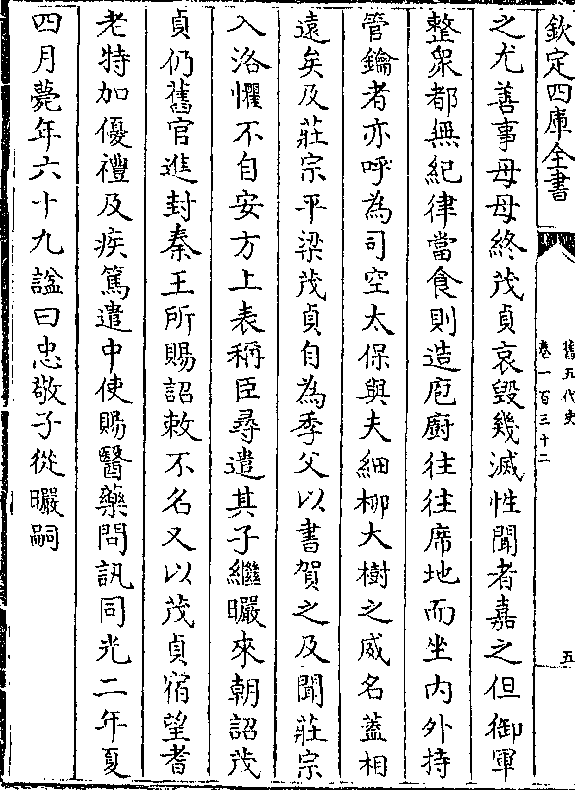 欽定四庫全書
舊五代史
卷一百三十二
五
之尤善事母母終茂貞哀毀幾滅性聞者嘉之但御軍
整衆都無紀律當食則造庖廚往往席地而坐内外持
管鑰者亦呼為司空太保與夫細柳大樹之威名蓋相
遠矣及莊宗平梁茂貞自為季父以書賀之及聞莊宗
入洛懼不自安方上表稱臣尋遣其子繼曮來朝詔茂
貞仍舊官進封秦王所賜詔敕不名又以茂貞宿望耆
老特加優禮及疾篤遣中使賜醫藥問訊同光二年夏
四月薨年六十九諡曰忠敬子從曮嗣